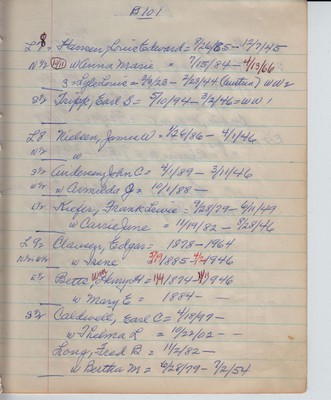 B 101
L 8 = Hansen, Louis Edward = 9/26/85 - 12/7/45
N½ w Anna Marie = 7/15/84 - 4/13/66
s = Lyle Louis = 2/23 - 2/23/44 (Austria) W W 2
S½ Tripp, Earl S = 5/10/94 - 3/2/46 = W W 1
L 8 Nielsen, James W = 1/26/86 - 4/1/46
N½ w
S½ Andersen, John C = 4/1/89 - 3/11/46
w Armilda J = 10/1/88 -
Kiefer, Frank Lewis = 9/28/79 - 6/11/49
w Carrie Jane = 11/19/82 - 8/28/46
L 9 = Clawser, Edgar = 1878 - 1964
w Irene 1885 - 1946
Betts, Henry H = 1874 - 1946
w Mary E = 1884 -
S½ Caldwell, Earl C = 4/18/99 -
w Thelma L = 10/22/02 -
Long, Fred B = 11/2/82 -
w Bertha M = 6/28/79 - 7/2/54